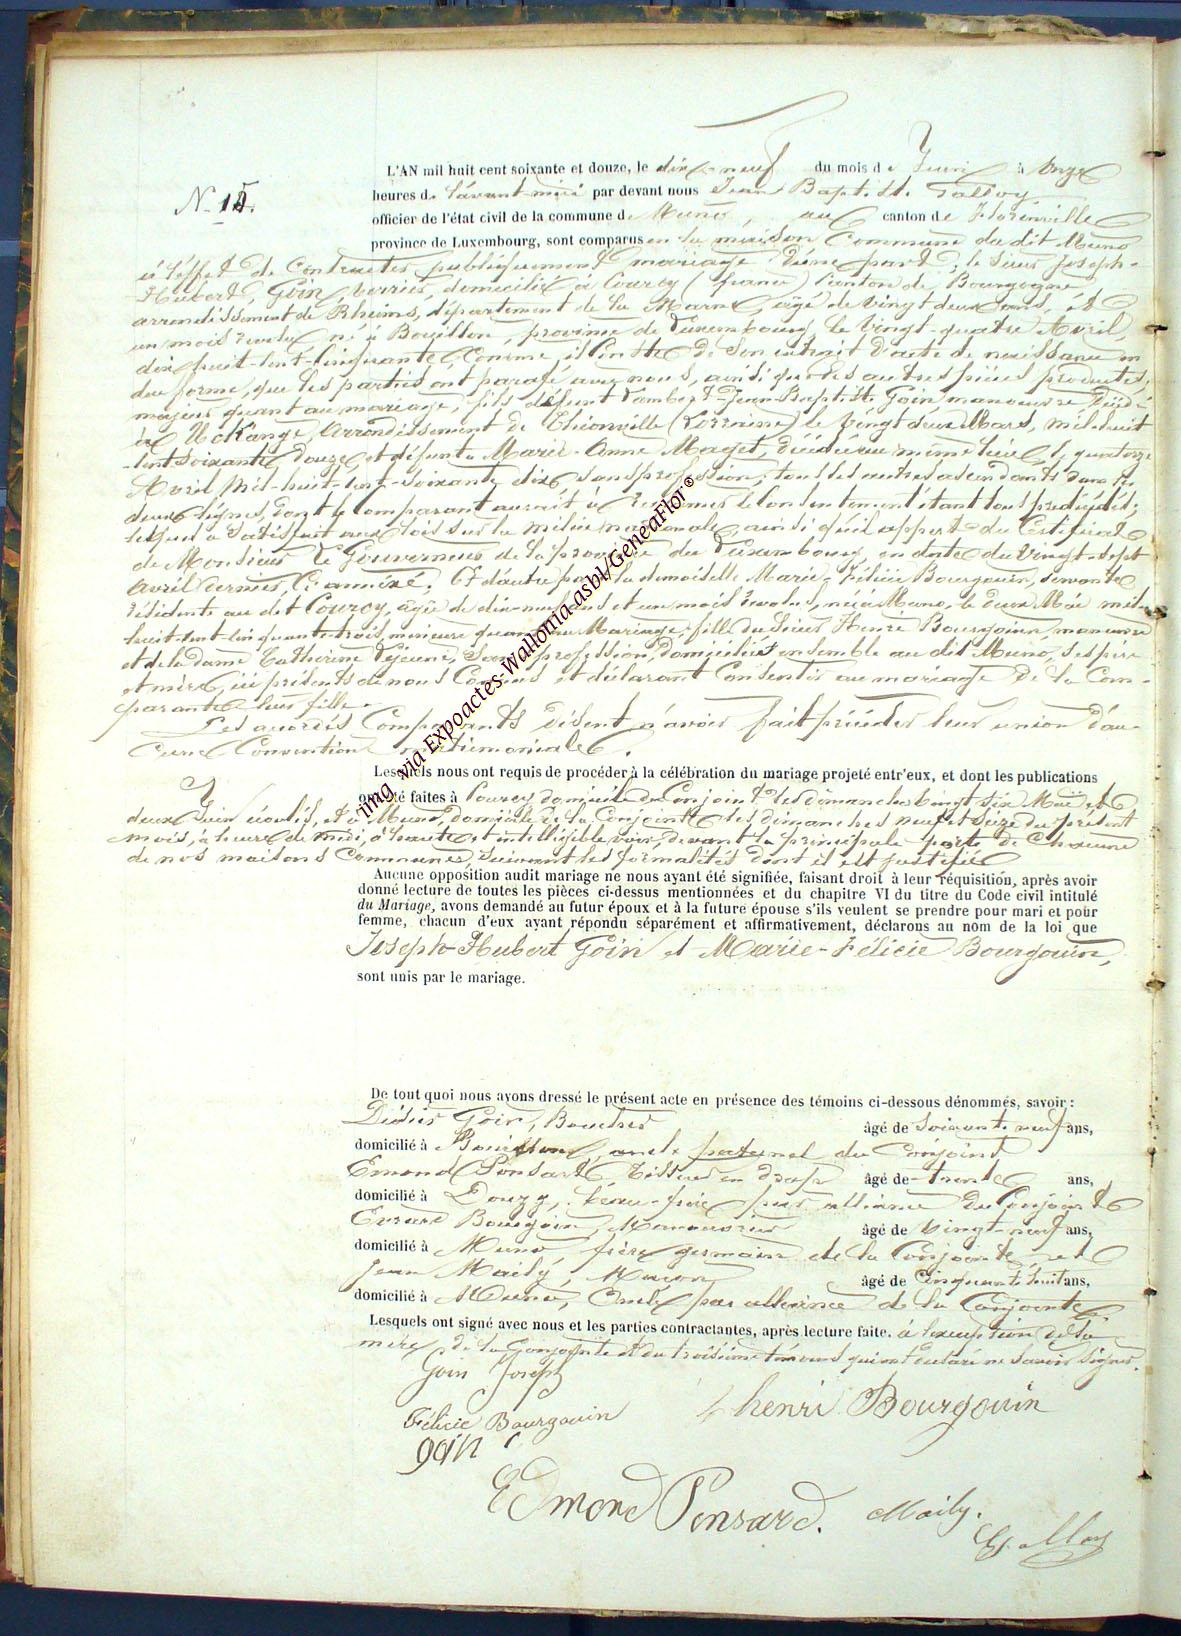 L'AN mil huit cent soixante et douze, le dix-neuf du mois de Juin à onze
N° 15.
heures de l'avant-midi par devant nous Jean Baptiste
officier de l'état civil de la commune de Muno, au canton de Florenville
province de Luxembourg, sont comparus en la maison Commune du dit Muno
à l'effet de Contracter publiquement mariage d'une part, le sieur Joseph-
Hubert, Goin, verrier, domicilié à Courcy (france) Canton de Bourgogne
arrondissement de Rheims, département de la Marne, âgé de vingt deux ans, et
un mois révolu, né à Bouillon, province de Luxembourg, le vingt-quatre Avril,
dix huit-cent-cinquante, Comme il Conste de Son extrait d'acte de naissance en
due forme, que les parties ont parafé avec nous, ainsi que les autres pièces produites,
majeur quant au mariage, fils de feu Lambert-Jean-Baptiste Goin manœuvre décédé
à Uckange, Arrondissement de Thionville (Lorraine) le vingt deux Mars, mil-huit
-cent soixante douze, et défunte Marie-Anne Maget, décédée au même lieu, le quatorze
Avril Mil-huit-cent-soixante dix, sans profession; tous les autres ascendants dans les
deux lignes, dont le Comparant aurait à le Consentement étant tous prédécédés;
lequel a satisfait aux lois sur la milice nationale, ainsi qu'il appert du Certificat
de Monsieur le Gouverneur de la province du Luxembourg, en date du vingt-sept
Avril dernier, Ci-annexé. Et d'autre part, la demoiselle Marie-Félicie Bourgouin, servante
résidente au dit Courcy, âgée de dix-neuf ans et un mois révolus, née à Muno, le deux Mai mil-
huit-cent-cinquante-trois, mineure quant au Mariage, fille du Sieur Henri Bourgouin, manœuvre
et de la dame Catherine Lejeune, Sans profession, domiciliés ensemble au dit Muno, ses père
et mère, ici présents de nous Connus et déclarant Consentir au mariage de la Com-
parante leur fille.
Les Comparants disent n'avoir fait précéder leur union d'au-
cune Convention matrimoniale.
Lesquels nous ont requis de procéder à la célébration du mariage projeté entr'eux, et dont les publications
ont été faites à Courcy domicile du Conjoint les dimanches vingt six Mai et
deux Juin écoulés, et à Muno, domicile de la Conjointe les dimanches neuf et seize du présent
mois, à l'heure de midi, à haute et intelligible voix, devant la principale porte de Chacune
de nos maisons Communes, suivant les formalités dont il est justifié
Aucune opposition audit mariage ne nous ayant été signifiée, faisant droit à leur réquisition, après avoir
donné lecture de toutes les pièces ci-dessus mentionnées et du chapitre VI du titre du Code civil intitulé
du Mariage, avons demandé au futur époux et à la future épouse s'ils veulent se prendre pour mari et pour
femme, chacun d'eux ayant répondu séparément et affirmativement, déclarons au nom de la loi que
Joseph-Hubert Goin et Marie-Félicie Bourgouin,
sont unis par le mariage.
De tout quoi nous avons dressé le présent acte en présence des témoins ci-dessous dénommés, savoir :
Didier Goin, Boucher âgé de Soixante neuf ans,
domicilié à Bouillon, oncle paternel du Conjoint
Emond Ponsard, Tisseur en drap âgé de trente ans,
domicilié à Douzy, beau-frère par alliance du Conjoint
Bourgoin, Manœuvrier âgé de vingt-neuf ans,
domicilié à Muno, frère germain de la Conjointe, et
Jean Maily, Maçon âgé de Cinquante huit ans,
domicilié à Muno, Oncle par alliance de la Conjointe.
Lesquels ont signé avec nous et les parties contractantes, après lecture faite. à l'exception de la
mère de la Conjointe et du troisième témoin qui ont déclaré ne Savoir Signer.
Goin Joseph
henri Bourgouin
Félicie Bourgouin
goin
Edmond Ponsard.
Maily.
img via Expoactes-Wallonia asbl/GeneaFlor®